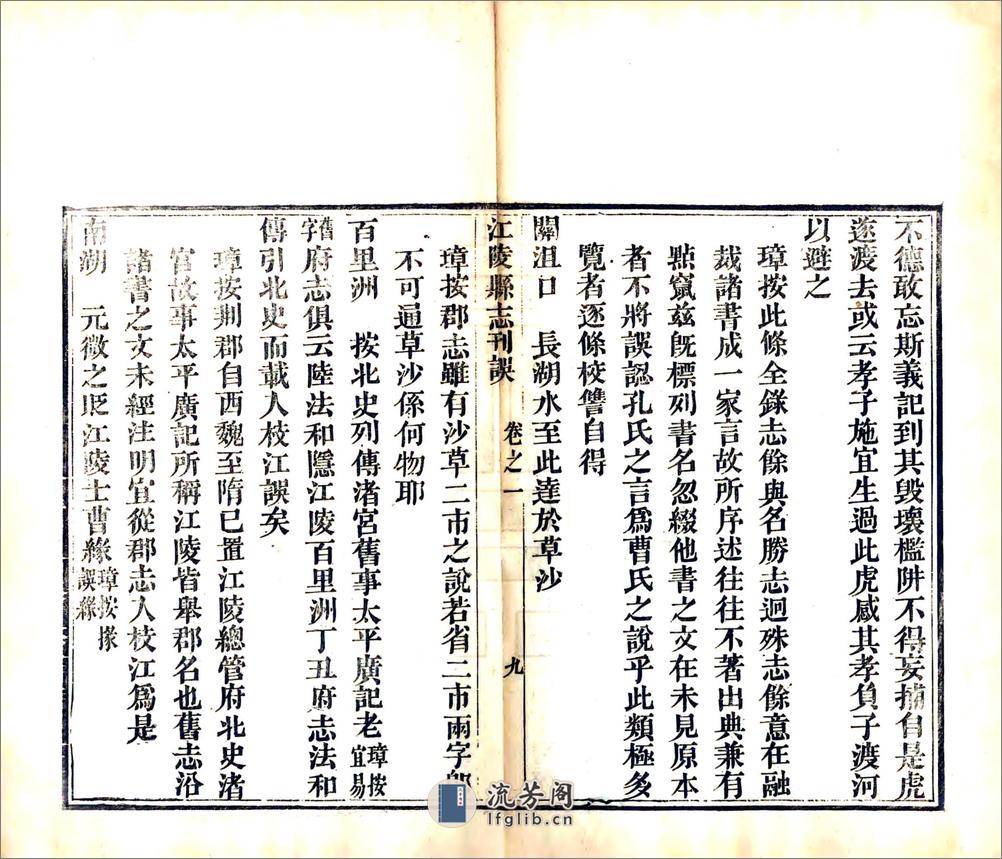 不德敢忘斯義記到其毀壞檻阱不得妄捕自是虎
遂渡去或云孝子施宜生過此虎感其孝負子渡河
以避之
璋按此條全錄志餘與名勝志迥殊志餘意在融
裁諸書成一家言故所序述往往不著出典兼有
點竄茲旣標列書名忽綴他書之文在未見原本
者不將誤認孔氏之言爲曹氏之說乎此類極多
覽者逐條校讐自得
關沮口　長湖水至此達於草沙
江陵縣志刊誤　卷之一　九
璋按郡志雖有沙草二市之說若省二市兩字卽
不可通草沙係何物耶
百里洲　按北史列傳渚宮舊事太平廣記老璋按宜易
舊字府志俱云陸法和隱江陵百里洲丁丑府志法和
傳引北史而載入枝江誤矣
璋按荆郡自西魏至隋已置江陵總管府北史渚
宮故事太平廣記所稱江陵皆舉郡名也舊志沿
諸書之文未經注明宜從郡志入枝江爲是
南湖　元微之貶江陵士曹緣璋按掾誤緣
流芳阁
lfglib.cn